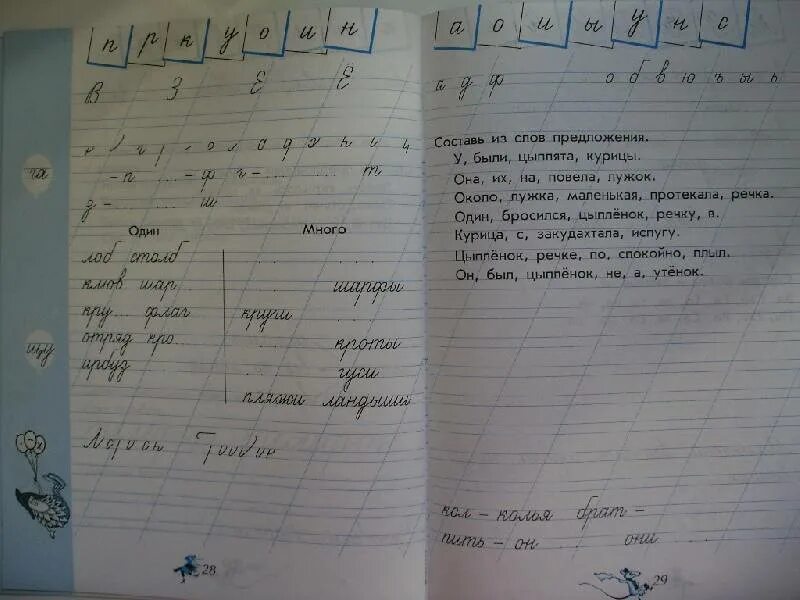 п р к у о и н
В З Е Ё
- п ... - ф г - ... т
з - ... ш
Один Много
лоб столб
клюв шар... шарфы
кру... флаг круги
отряд кро... кроты
арбуз гуси
пляжи ландыши
28
а о и ы у н с
а д ф о б в ю ъ ы ь
Составь из слов предложения.
У, были, цыплята, курицы.
Она, их, на, повела, лужок.
Около, лужка, маленькая, протекала, речка.
Один, бросился, цыплёнок, речку, в.
Курица, с, закудахтала, испугу.
Цыплёнок, речке, по, спокойно, плыл.
Он, был, цыплёнок, не, а, утёнок.
кол - колья брат -
пить - он ... они ...
29